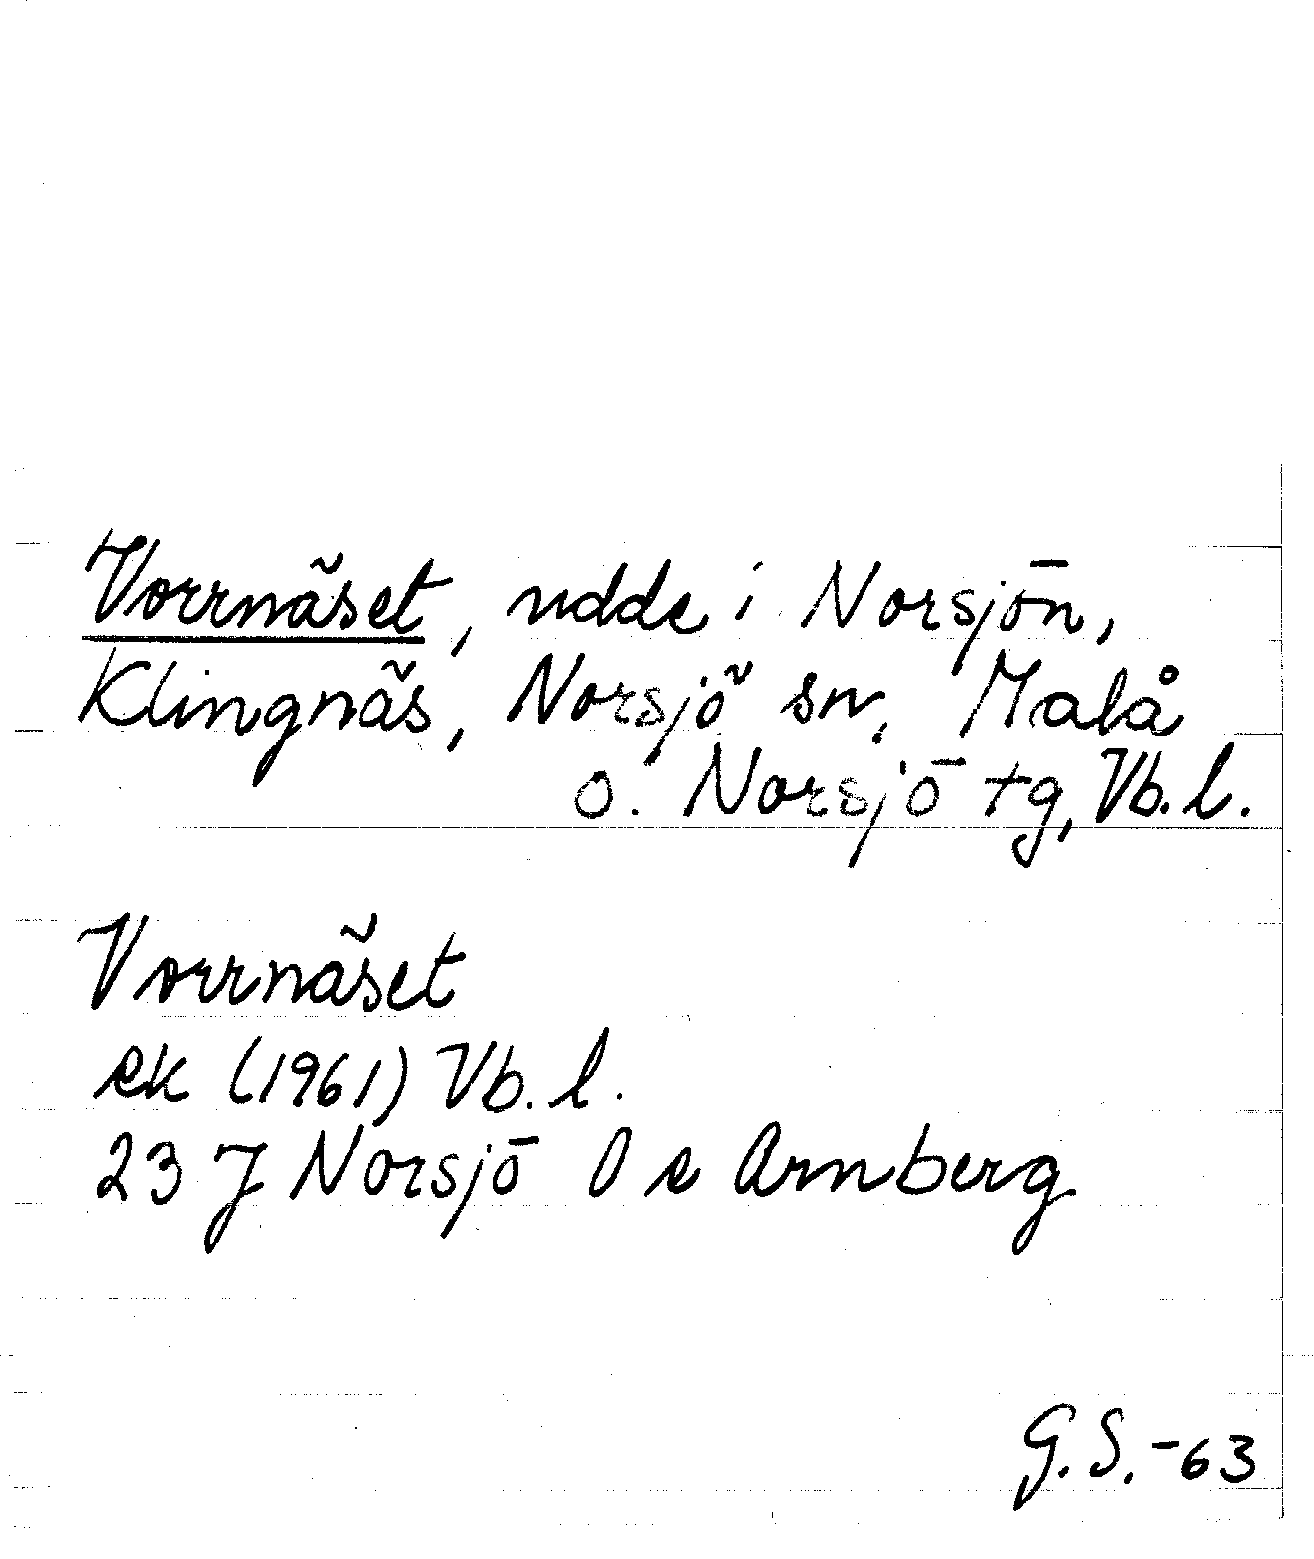 Vorrnäset, udde i Norsjön,
Klingnäs, Norsjö sn, Malå
o. Norsjö tg, Vb. l.
Vorrnäset
ek (1961) Vb. l.
23 J Norsjö 0 e Arnberg
G. S. -63